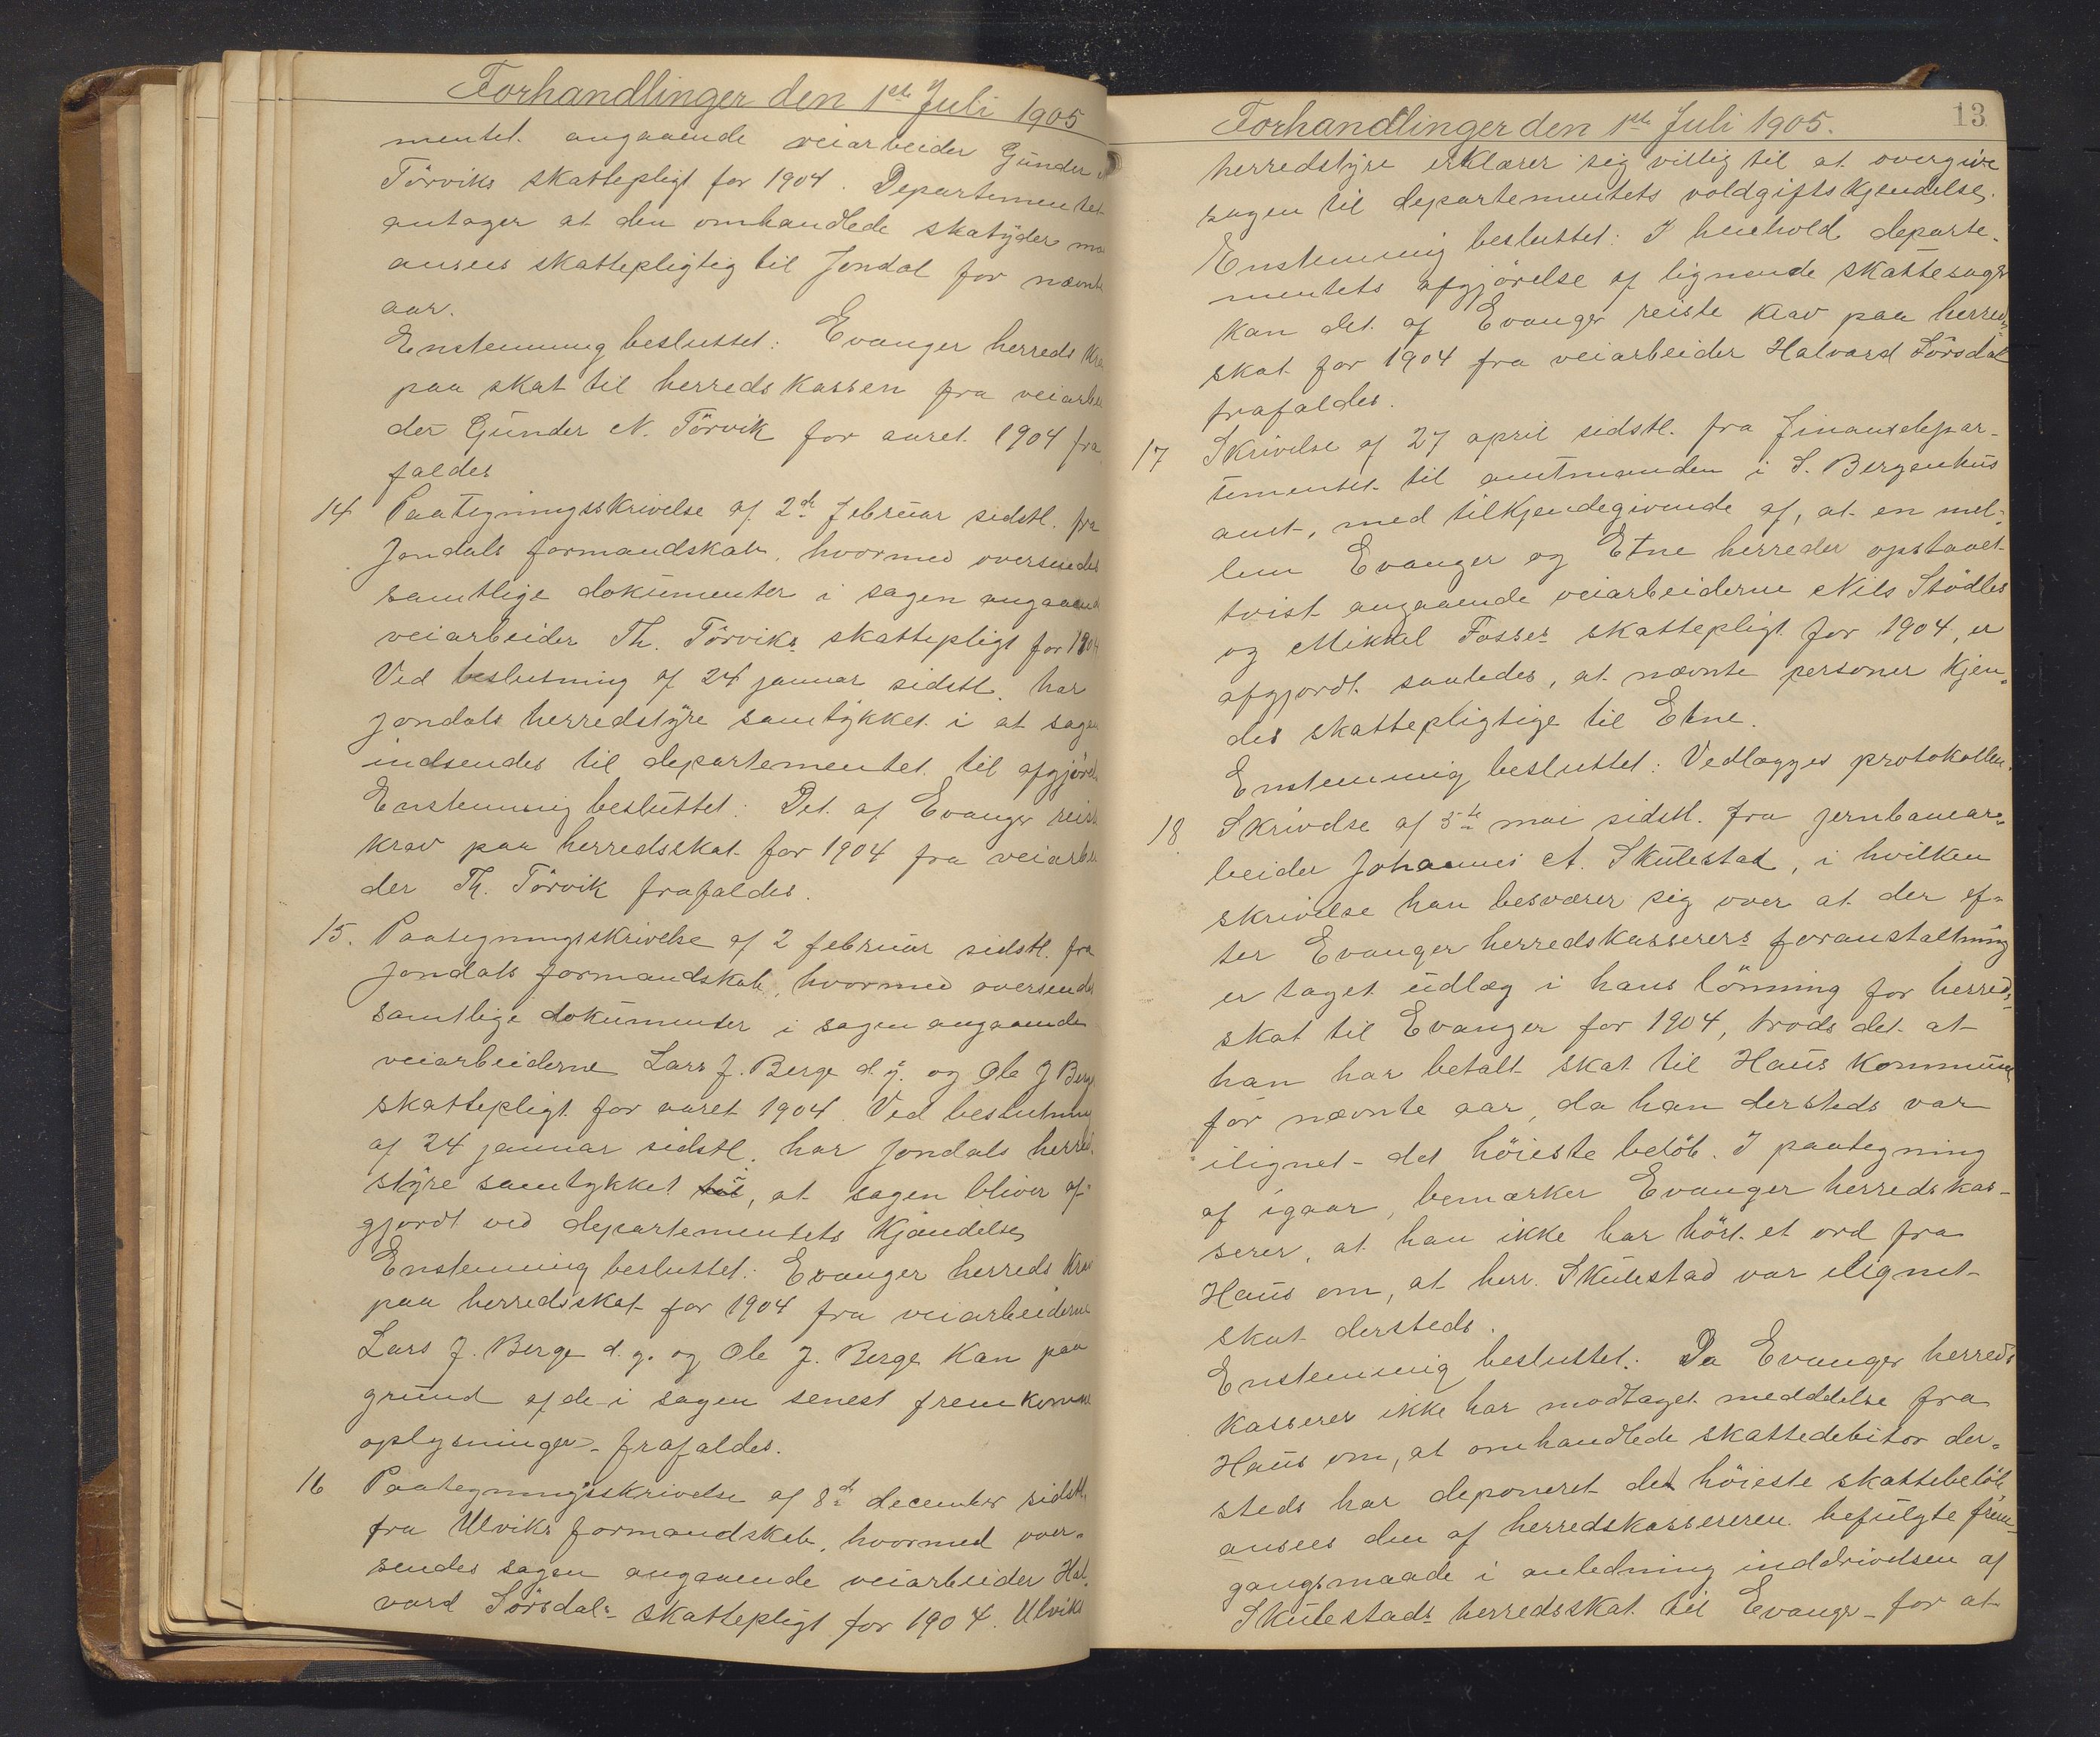 Forhandlinger den 1ste Juli 1905
mentet angaaende veiarbeider Gunder
Törviks skattepligt for 1904. Departementet
antager at den omhandlede skatyder maa
ansees skattepligtig til Jondal for nævnte
aar.
Enstemmig besluttet: Evanger herreds kra
paa skat til herredskassen fra veiarbei
der Gunder N. Törvik for aaret 1904 fra
faldes
14 Paategningsskrivelse af 2de februar sidstl. fra
Jondals formandskab, hvormed oversendes
samtlige dokumenter i sagen angaaende
veiarbeider Th. Törviks skattepligt for 1904
Ved beslutning af 24 januar sidstl. har
Jondals herredstyre samtykket i at sagen
indsendes til departementet til afgjörelse
Enstemmig besluttet: Det af Evanger reiste
krav paa herredsskat for 1904 fra veiarbei
der Th. Törvik frafaldes.
15. Paategningsskrivelse af 2 februar sidstl. fra
Jondals formandskab, hvormed oversendes
samtlige dokumenter i sagen angaaende
veiarbeiderne Lars J. Berge d.y. og Ole J Berge
skattepligt for aaret 1904. Ved beslutning
af 24 januar sidstl. har Jondals herred
styre samtykket til, at sagen bliver af-
gjordt ved departementets Kjendelse,
Enstemmig besluttet: Evanger herreds Krav
paa herredsskat for 1904 fra veiarbeiderne
Lars J. Berge d.y. og Ole J. Berge Kan paa
grund af de i sagen senest fremkomne
oplysninger frafaldes.
16 Paategningsskrivelse af 8de december sidstl.
fra Ulviks formandskab, hvormed over-
sendes sagen angaaende veiarbeider Hal-
vard Sörsdals skattepligt for 1904. Ulviks
Forhandlinger den 1ste Juli 1905.
13
herredstyre erklærer sig villig til at overgive
sagen til departementets voldgiftskjendelse.
Enstemmig besluttet: I henhold departe-
mentets afgjörelse af lignende skattesager
kan det af Evanger reiste krav paa herreds-
skat for 1904 fra veiarbeider Halvard Sörsdal
frafaldes.
17 Skrivelse af 27 april sidstl. fra Finansdepar-
tementet til amtmanden i S. Bergenhus
amt, med tilkjendegivende af, at en mel-
lem Evanger og Etne herreder opstaaet
tvist angaaende veiarbeiderne Nils Stödles
og Mikkel Fosses skattepligt for 1904, er
afgjordt saaledes, at nævnte personer kjen-
des skattepligtige til Etne.
Enstemmig besluttet: Vedlægges protokollen.
18 Skrivelse af 5te mai sidstl. fra jernbanear-
beider Johannes A. Skulestad, i hvilken
skrivelse han besværer sig over at der ef-
ter Evanger herredskasserers foranstaltning
er taget udlæg i hans lönning for herreds-
skat til Evanger for 1904, trods det at
han har betalt skat til Haus Kommune
for nævnte aar, da han dersteds var
ilignet det höieste belöb. I paategning
af igaar, bemærker Evanger herredskas-
serer, at han ikke har hört et ord fra
Haus om, at herr. Skulestad var ilignet
skat dersteds.
Enstemmig besluttet: Da Evanger herreds
kasserer ikke har modtaget meddelelse fra
Haus om, at omhandlede skattedebitor der-
steds har deponeret det höieste skattebelöb,
ansees den af herredskassereren befulgte frem-
gangsmaade i anledning inddrivelsen af
Skulestads herredsskat til Evanger for at